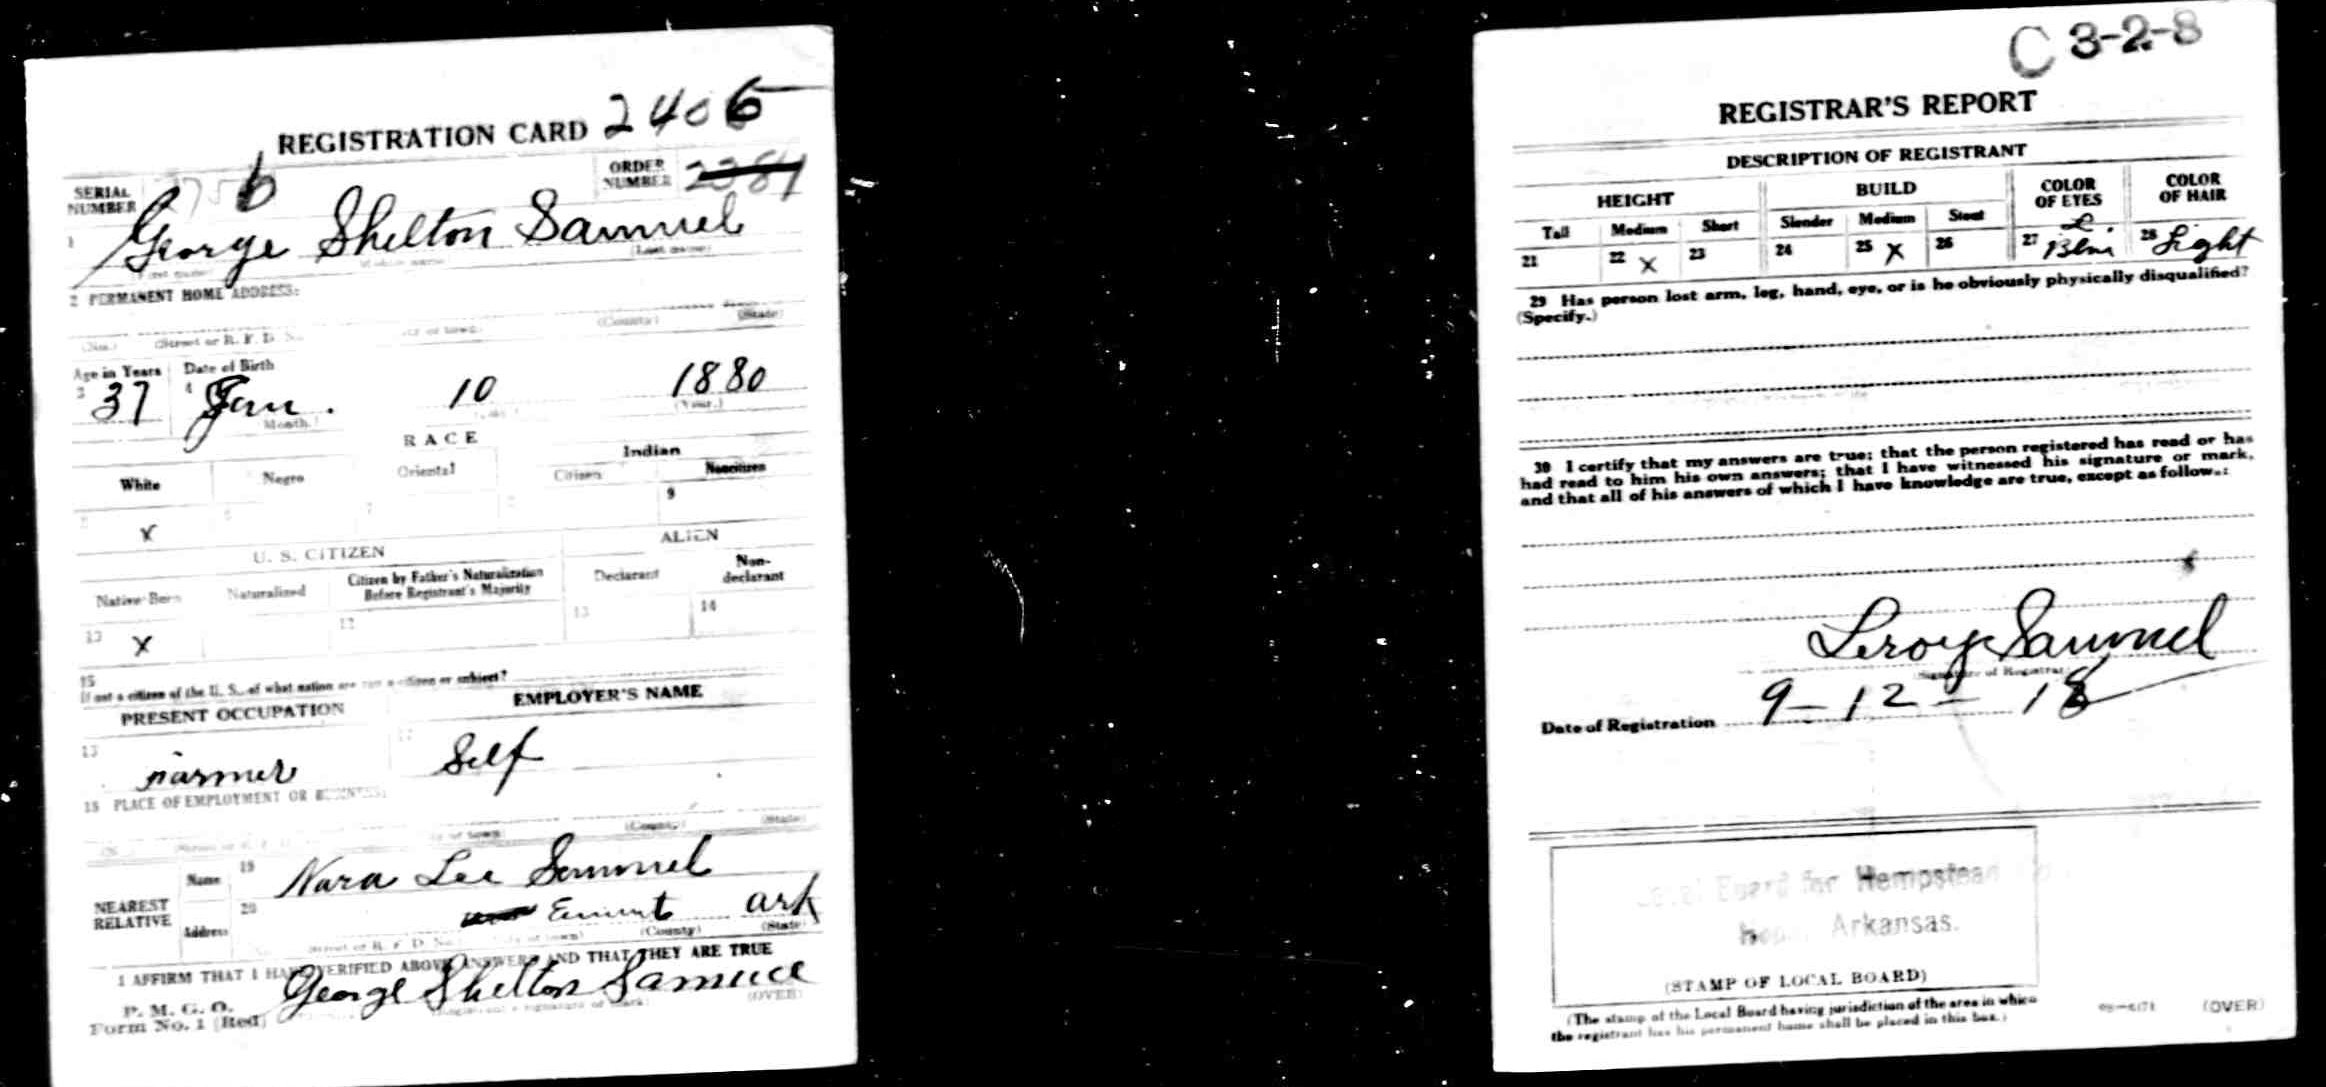 REGISTRATION CARD 2406
SERIAL NUMBER
ORDER NUMBER 2384
1 George Shelton Samuel
(Last name)
2 PERMANENT HOME ADDRESS:
(No.) (Street or R. F. D. No. (City or town) (County) (State)
Age in Years Date of Birth
3 37 4 Jan. 10 1880
Month. (Year.)
RACE
White Negro Oriental Indian
Citizen Noncitizen
X 9
U. S. CITIZEN ALIEN
Native-Born Naturalized Citizen by Father's Naturalization Before Registrant's Majority Declarant Non-declarant
X 12 13 14
15 If not a citizen of the U. S., of what nation are you a citizen or subject?
PRESENT OCCUPATION EMPLOYER'S NAME
farmer Self
18 PLACE OF EMPLOYMENT OR BUSINESS:
(County) (State)
NEAREST RELATIVE
Name 19 Nara Lee Samuel
Address 20 Emmet Ark
(Street or R. F. D. No.) (City or town) (County) (State)
I AFFIRM THAT I HAVE VERIFIED ABOVE ANSWERS AND THAT THEY ARE TRUE
P. M. G. O.
Form No. 1 (Red) George Shelton Samuel
(Registrant's signature or mark) (OVER)
C 3-2-8
REGISTRAR'S REPORT
DESCRIPTION OF REGISTRANT
HEIGHT BUILD COLOR OF EYES COLOR OF HAIR
Tall Medium Short Slender Medium Stout
21 22 X 23 24 25 X 26 27 28 Light
29 Has person lost arm, leg, hand, eye, or is he obviously physically disqualified?
(Specify.)
30 I certify that my answers are true; that the person registered has read or has
had read to him his own answers; that I have witnessed his signature or mark,
and that all of his answers of which I have knowledge are true, except as follows:
Leroy Samuel
(Signature of Registrar)
Date of Registration 9-12-18
Local Board for Hempstead
Hope, Arkansas.
(STAMP OF LOCAL BOARD)
(The stamp of the Local Board having jurisdiction of the area in which
the registrant has his permanent home shall be placed in this box.)
(OVER)